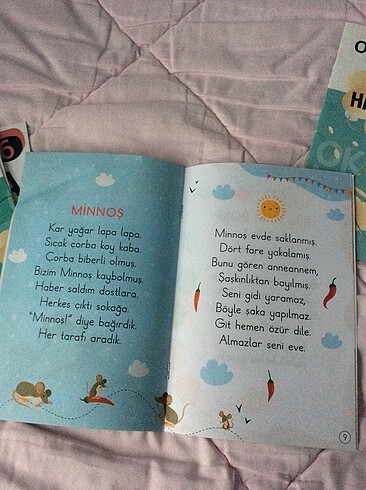 MİNNOŞ
Kar yağar lapa lapa.
Sıcak çorba koy kaba.
Çorba biberli olmuş.
Bizim Minnoş kaybolmuş.
Haber saldım dostlara.
Herkes çıktı sokağa.
"Minnoş!" diye bağırdık.
Her tarafı aradık.
Minnoş evde saklanmış.
Dört fare yakalamış.
Bunu gören anneannem,
Şaşkınlıktan bayılmış.
Seni gidi yaramaz,
Böyle şaka yapılmaz.
Git hemen özür dile.
Almazlar seni eve.
9